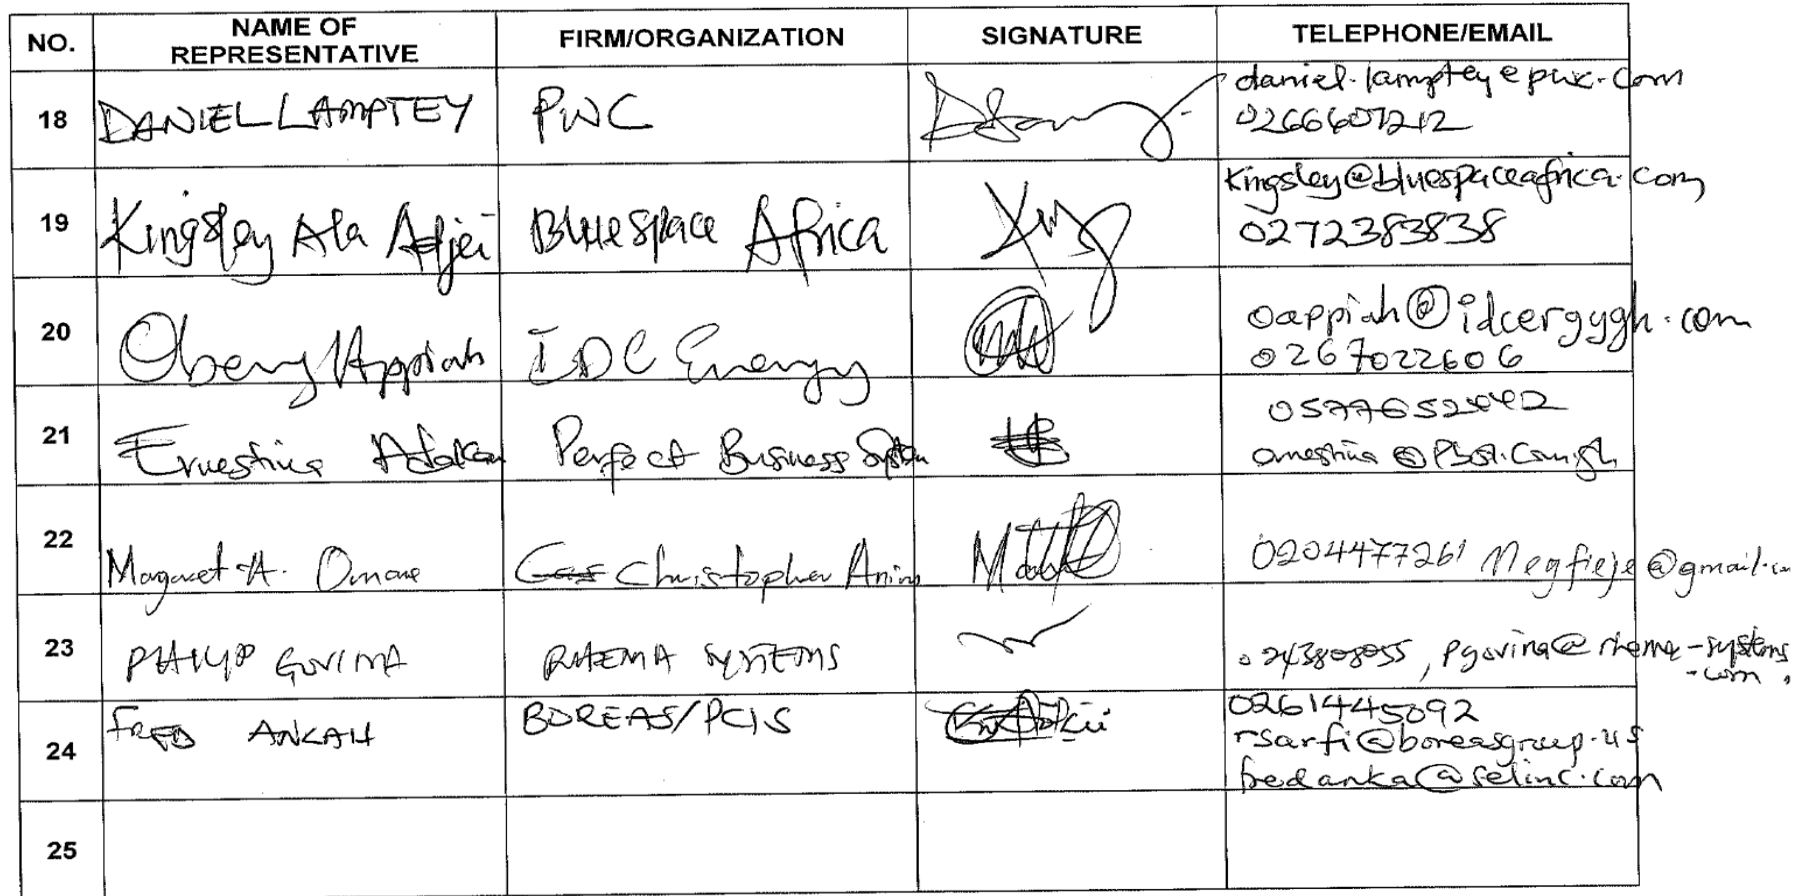 NO. NAME OF REPRESENTATIVE FIRM/ORGANIZATION SIGNATURE TELEPHONE/EMAIL
18 DANIEL LAMPTEY PWC daniel.lamptey@pwc.com
0266607212
19 Kingsley Ala Adjei Bluespace Africa Kingsley@bluespaceafrica.com
0272383838
20 Obeng Appiah IDC Energy oappiah@idcergygh.com
0267022606
21 Ernestina Perfect Business System
22 Margaret A. Omane Christopher 0204477261
23 PHILIP GOVINA RHEMA SYSTEMS pgovina@rhema-systems
.com
24 FRED ANKAH BOREAS/PCIS 0261445092
rsarfi@boreasgroup.us
fredanka@selinc.com
25